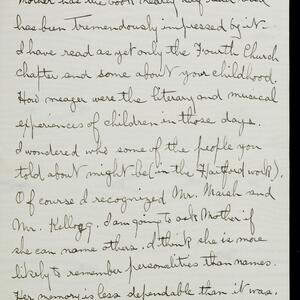 Mother has the book nearly half read and
has been tremendously impressed by it.
I have read as yet only the Fourth Church
chapter and some about your childhood.
How meager were the literary and musical
experiences of children in those days.
I wondered who some of the people you
told about might be (in the Hartford work).
Of course I recognized Mr. Maish and
Mr. Kellogg. I am going to ask Mother if
she can name others. I think she is more
likely to remember personalities than names.
Her memory is less dependable than it was.